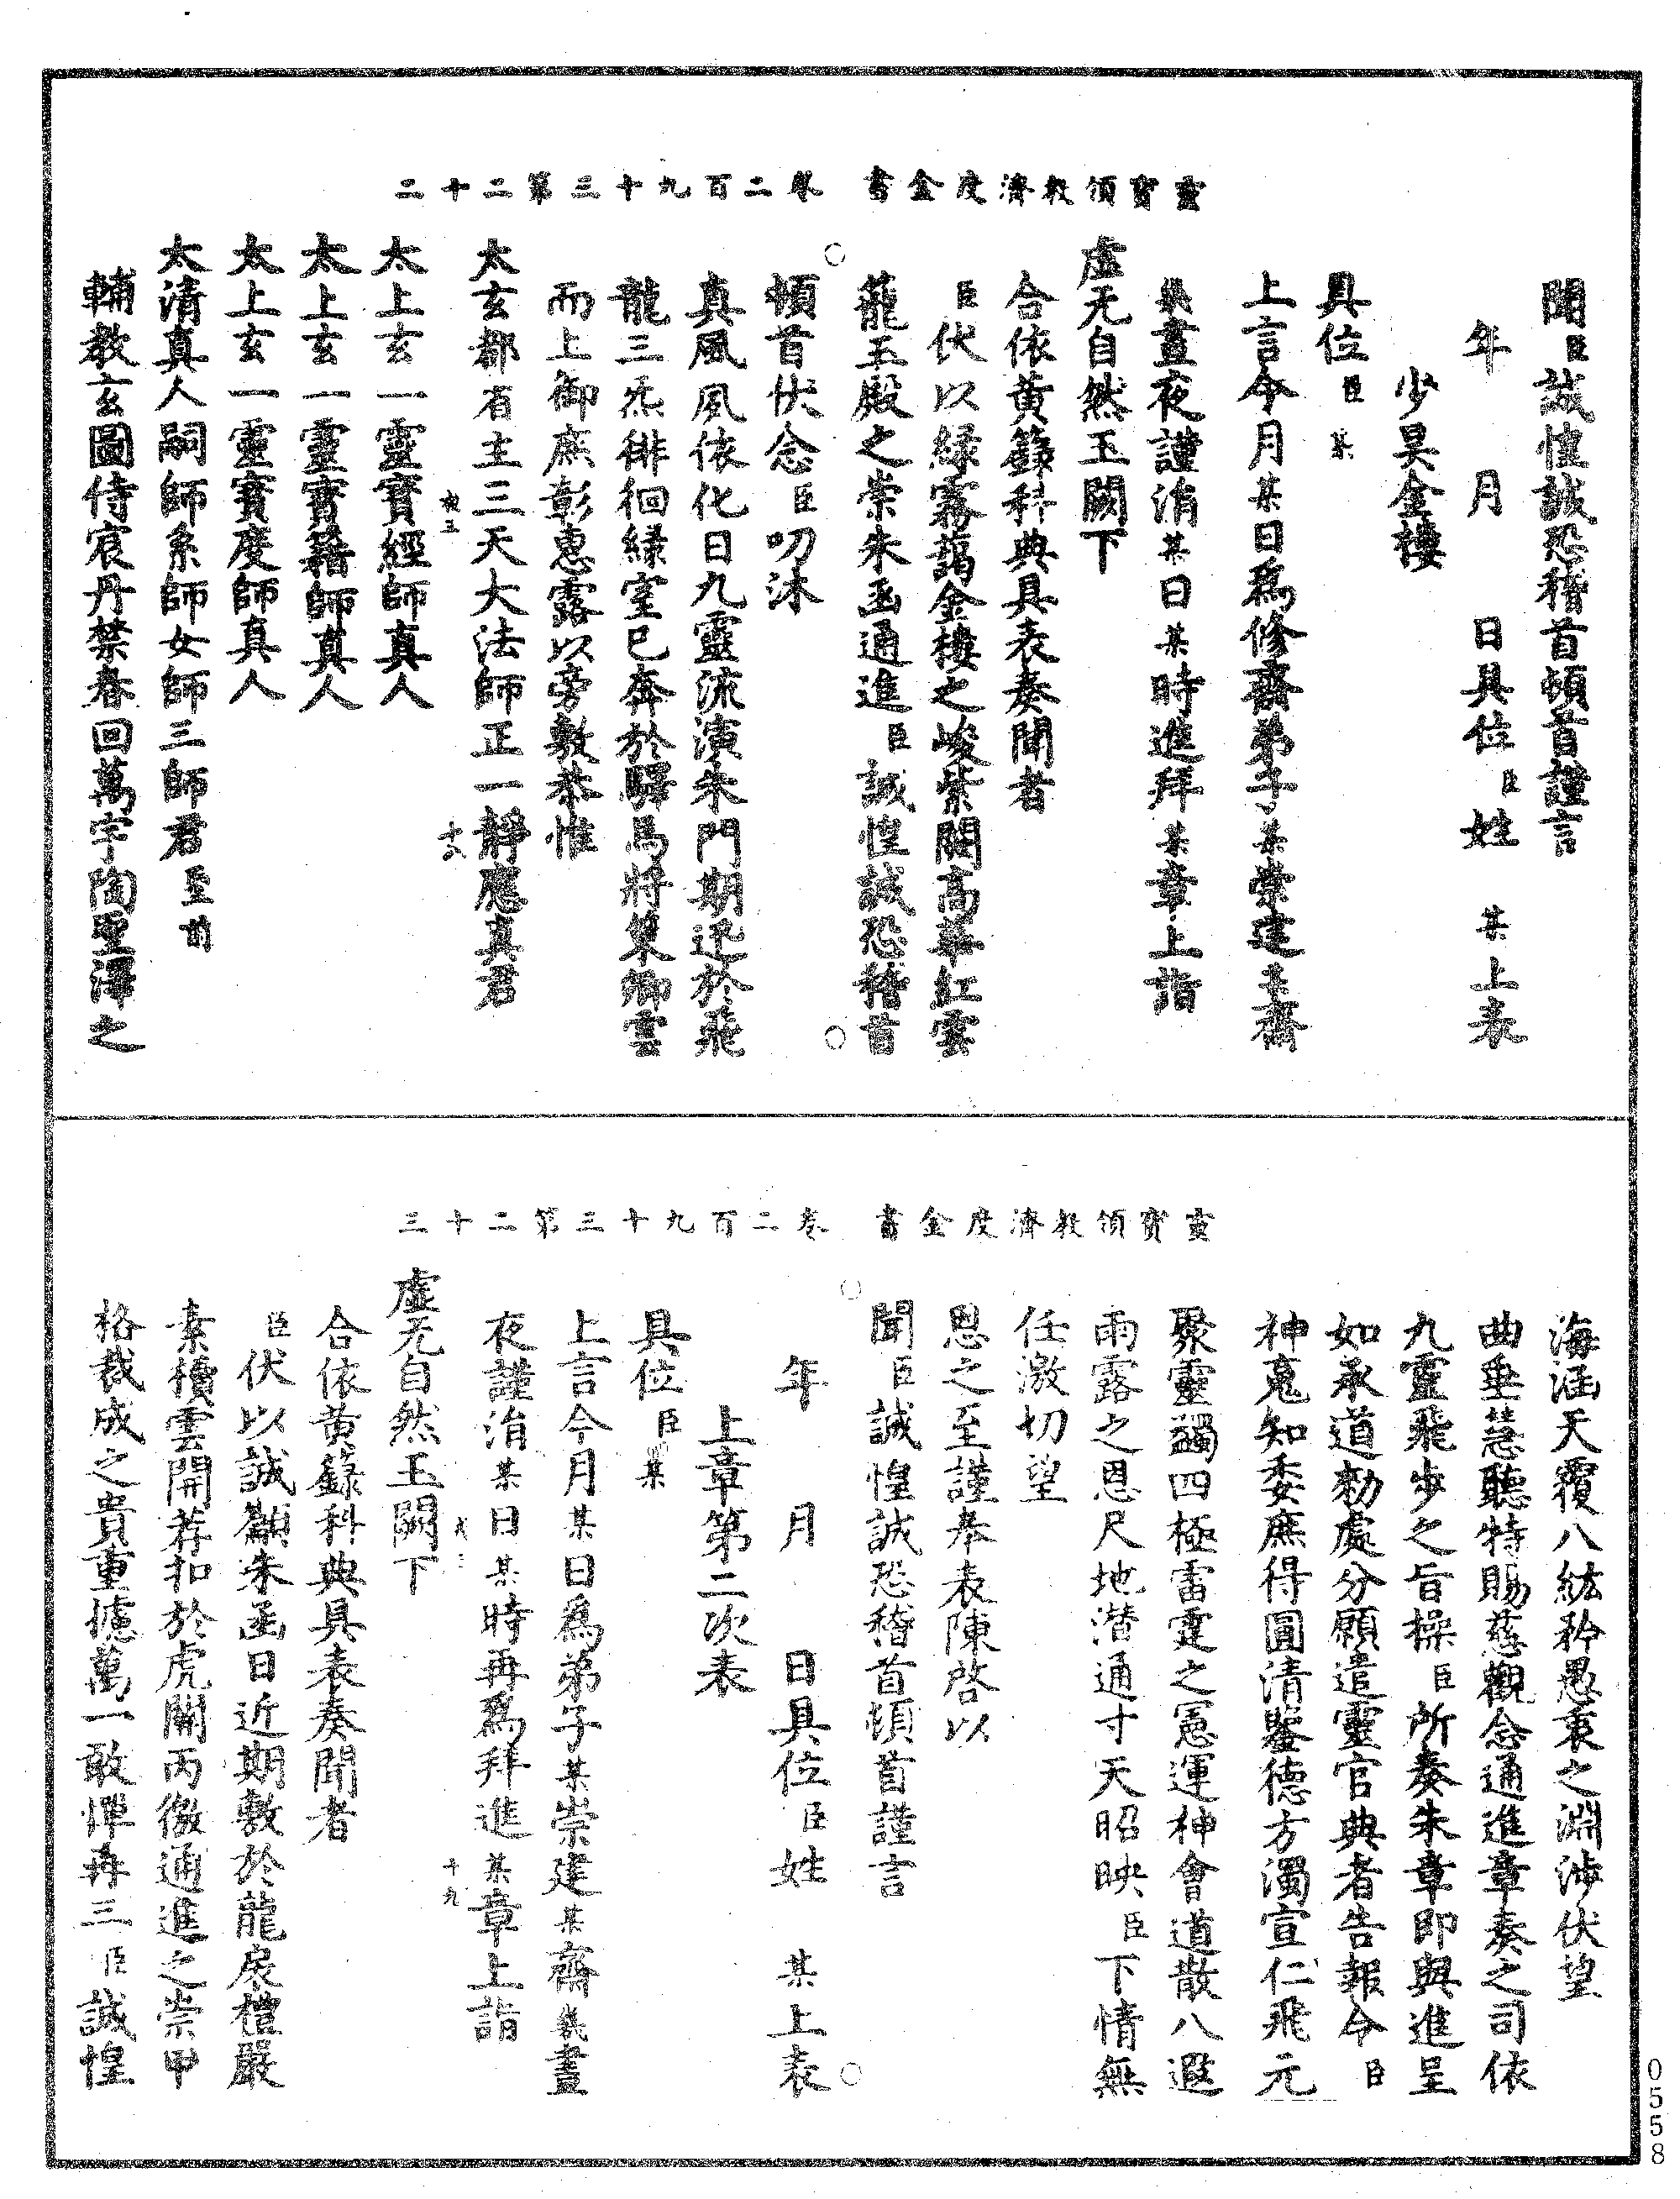 靈寶領教濟度金書 卷二百九十三第二十二
聞臣誠惶誠恐稽首頓首謹言
年 月 日具位臣姓 某上表
少昊金樓
具位臣某
上言今月某日為修齋弟子某崇建某齋
幾晝夜謹涓某日某時進拜某章上詣
虛无自然玉闕下
合依黃籙科典具表奏聞者
臣伏以綠霧藹金樓之峻紫闕高華紅雲
蘢玉殿之崇朱函通進臣誠惶誠恐稽首
頓首伏念臣叨沐
真風夙依化日九靈流演朱門期迅於飛
龍三炁徘徊綠室已奔於驛馬將策卿雲
而上御庶彰惠露以旁敷恭惟
太玄都省主三天大法師正一靜應真君
十八
太上玄一靈寶經師真人
太上玄一靈寶籍師真人
太上玄一靈寶度師真人
太清真人嗣師系師女師三師君至前
輔教玄圖侍宸丹禁春回萬宇陶聖澤之
靈寶領教濟度金書 卷二百九十三第二十三
海涵天覆八紘矜愚衷之淵涉伏望
曲垂慧聽特賜慈觀念通進章奏之司依
九靈飛步之旨操臣所奏朱章即與進呈
如承道勑處分願遣靈官典者告報令臣
神䰟知委庶得圓清鑒德方濁宣仁飛元
聚靈蠲四極雷霆之罳運神會道散八遐
雨露之恩尺地潜通寸天昭映臣下情無
任激切望
恩之至謹奉表陳啓以
聞臣誠惶誠恐稽首頓首謹言
年 月 日具位臣姓 某上表
上章第二次表
具位臣某
上言今月某日為弟子某崇建某齋幾晝
夜謹涓某日某時再為拜進某章上詣
十九
虛无自然玉闕下
合依黃籙科典具表奏聞者
臣伏以誠顓朱函日近期敷於龍扆檀嚴
素櫝雲開荐扣於虎關丙徹通進之崇甲
格裁成之貴重攄萬一敢憚再三臣誠惶
0558